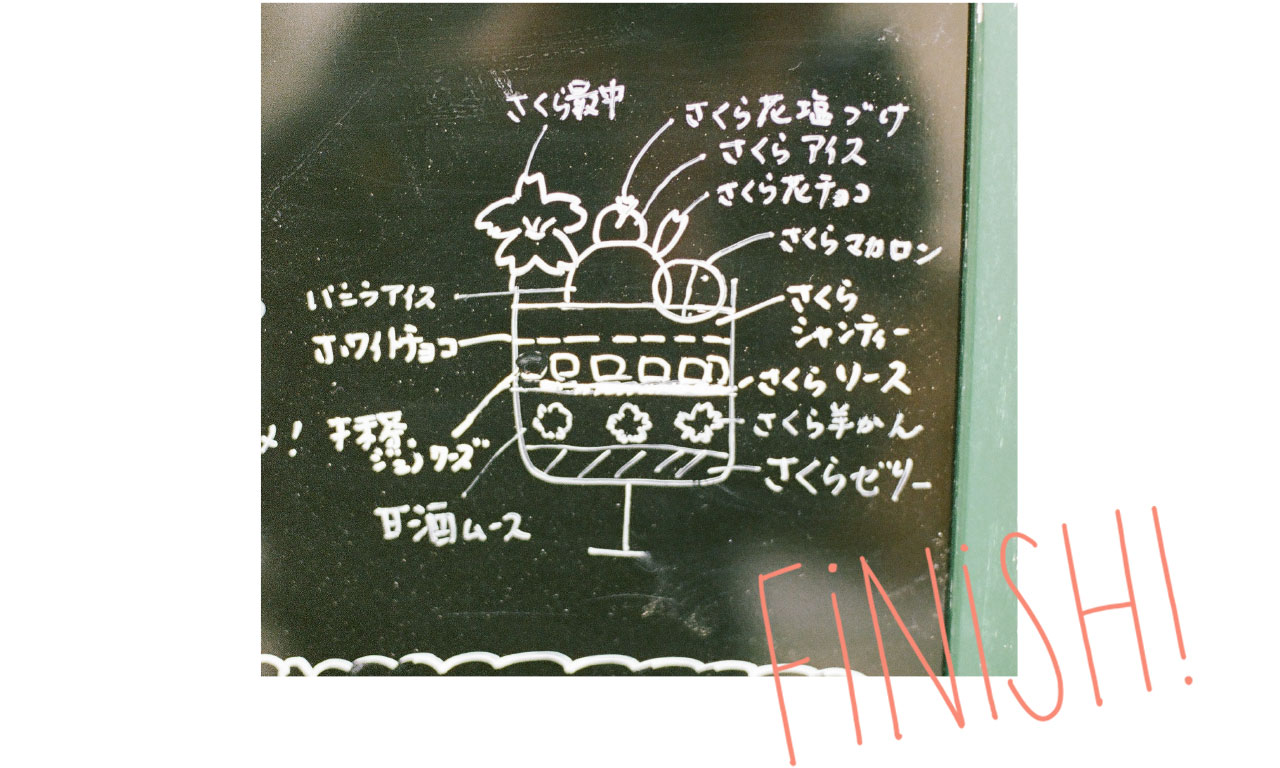 さくら最中
さくら花塩づけ
さくらアイス
さくら花チョコ
さくらマカロン
バニラアイス
さくら
シャンティー
ホワイトチョコ
さくらソース
さくら羊かん
さくらゼリー
甘酒ムース
FiNiSH!